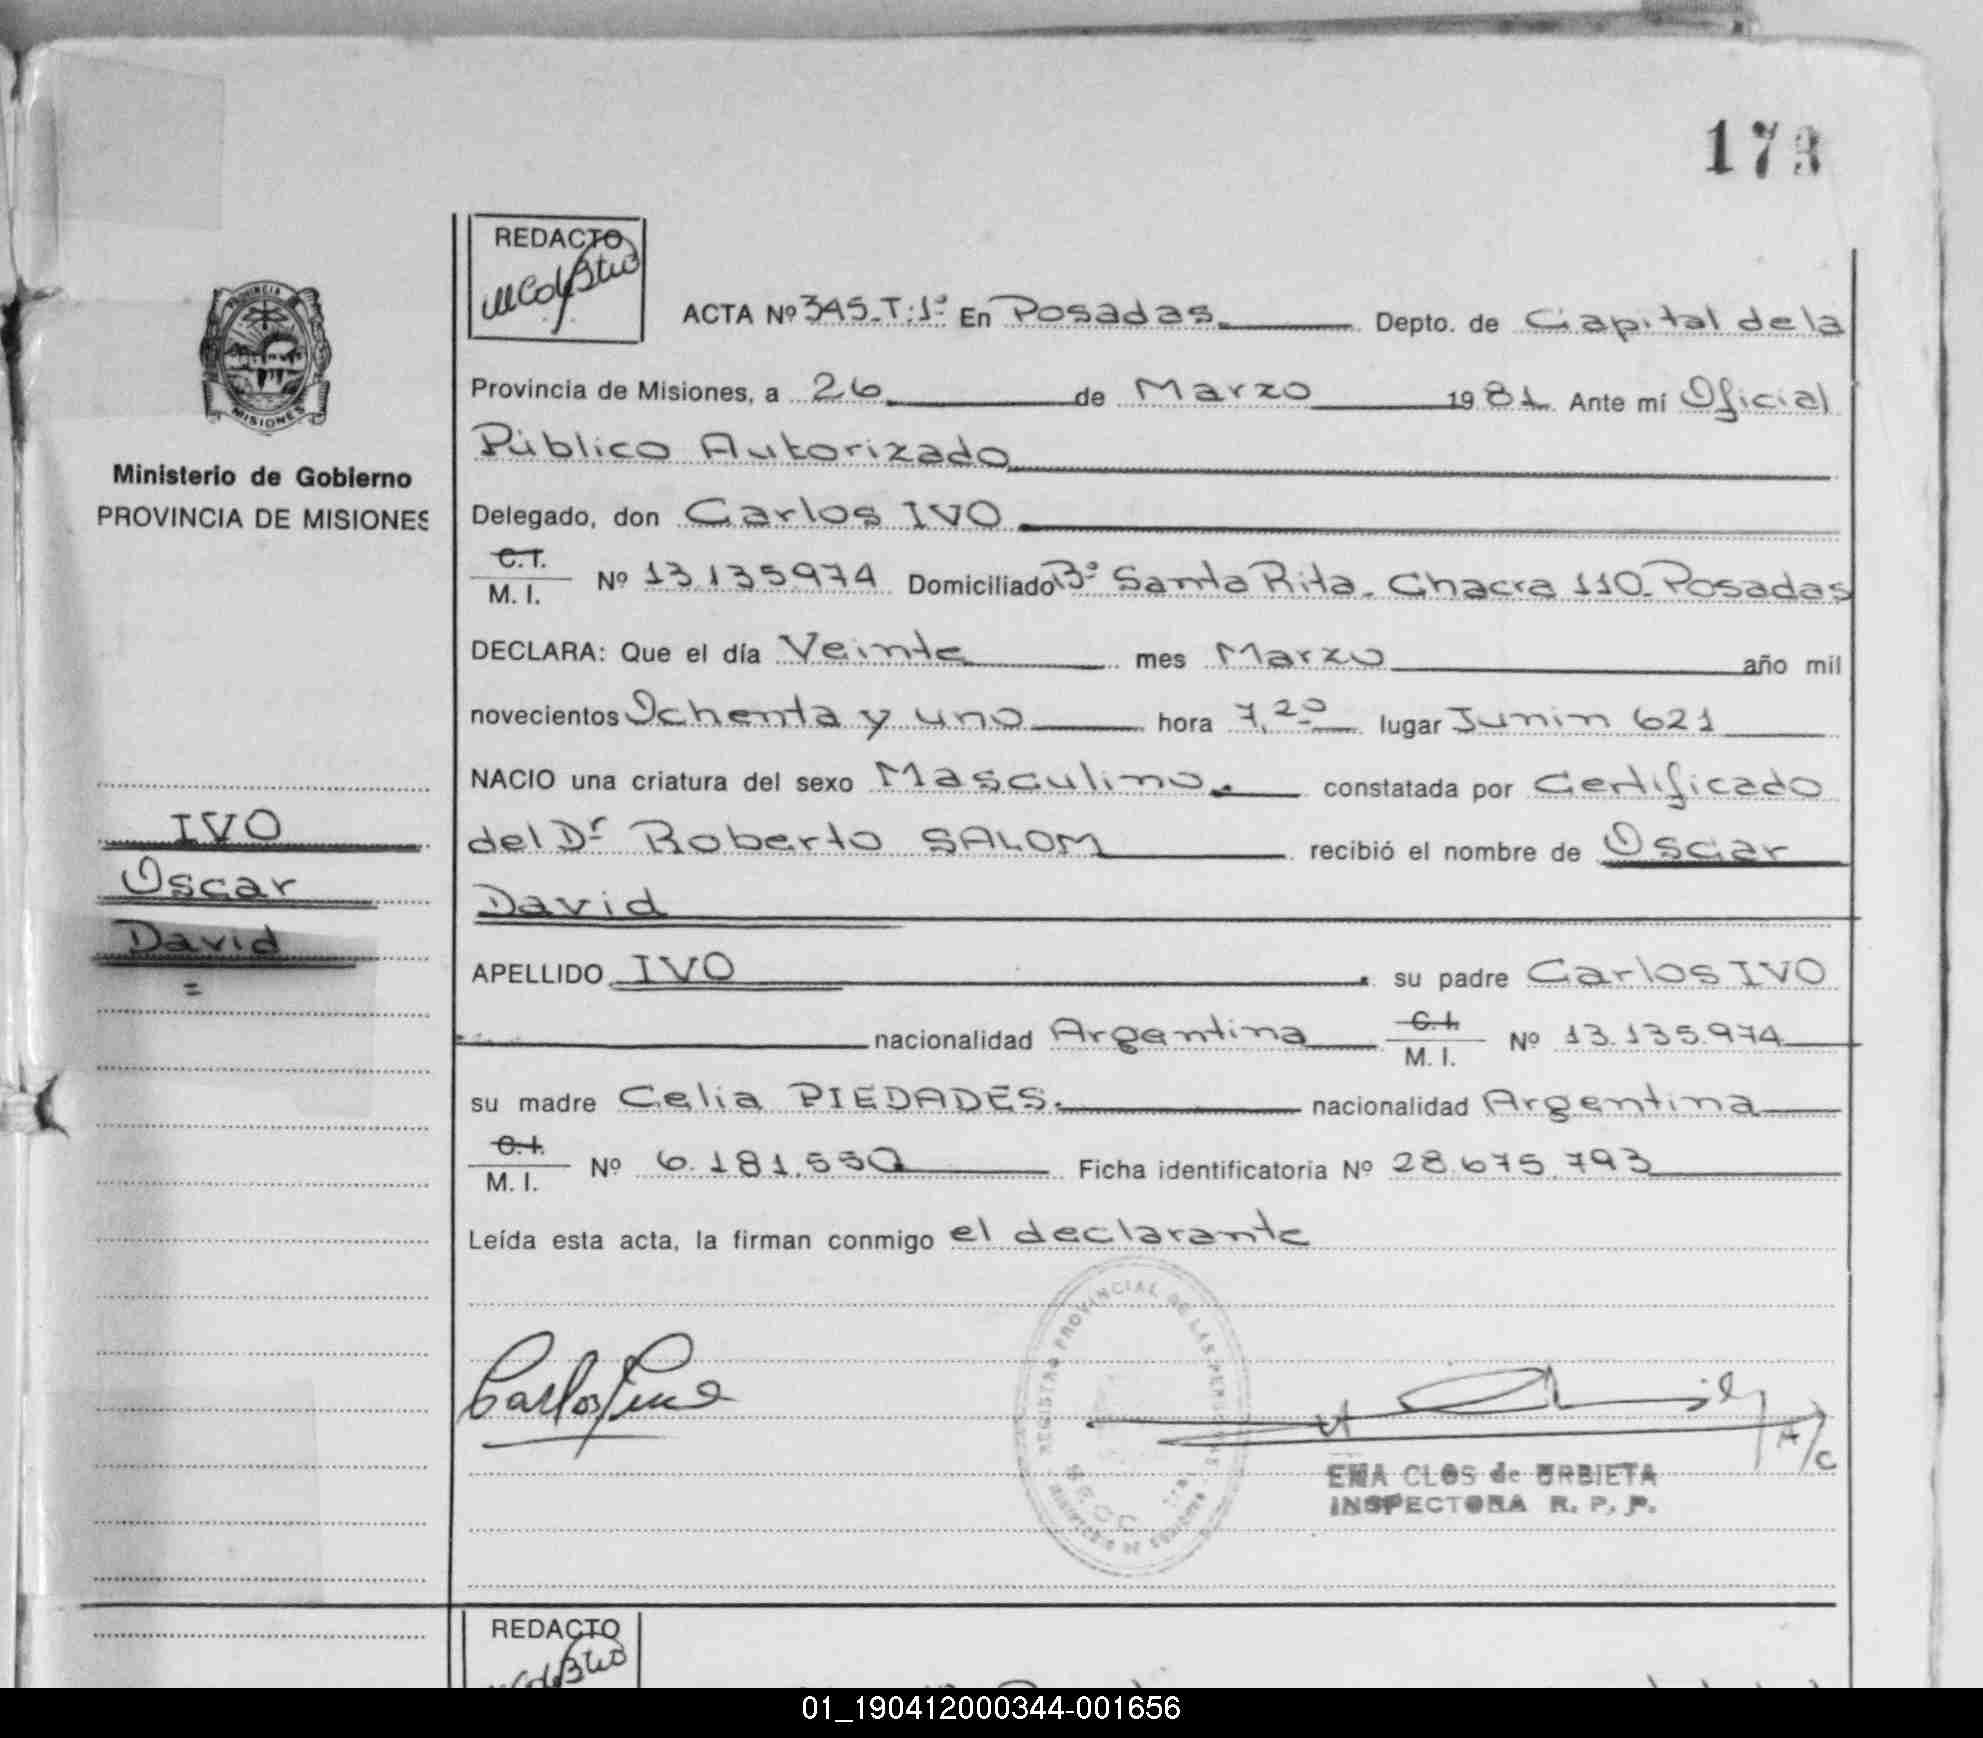 173
REDACTO
ACTA Nº 345-T:1º En Posadas Depto. de Capital de la
Provincia de Misiones, a 26 de Marzo 1981 Ante mí Oficial
Público Autorizado
Delegado, don Carlos IVO
C.I. M. I. Nº 13.135974 Domiciliado Bº Santa Rita - Chacra 110 - Posadas
DECLARA: Que el día Veinte mes Marzo año mil
novecientos Ochenta y uno hora 7,20 lugar Junin 621
NACIO una criatura del sexo Masculino. constatada por Certificado
del Dr Roberto SALOM recibió el nombre de Oscar
David
APELLIDO IVO su padre Carlos IVO
nacionalidad Argentina C.I. M. I. Nº 13.135.974
su madre Celia PIEDADES. nacionalidad Argentina
C.I. M. I. Nº 6.181.550 Ficha identificatoria Nº 28.675.793
Leída esta acta, la firman conmigo el declarante
PROVINCIA
MISIONES
Ministerio de Gobierno
PROVINCIA DE MISIONES
IVO
Oscar
David
=
REGISTRO PROVINCIAL DE LAS PERSONAS
A/C
EMA CLOS de URBIETA
INSPECTORA R. P. P.
REDACTO
01_190412000344-001656